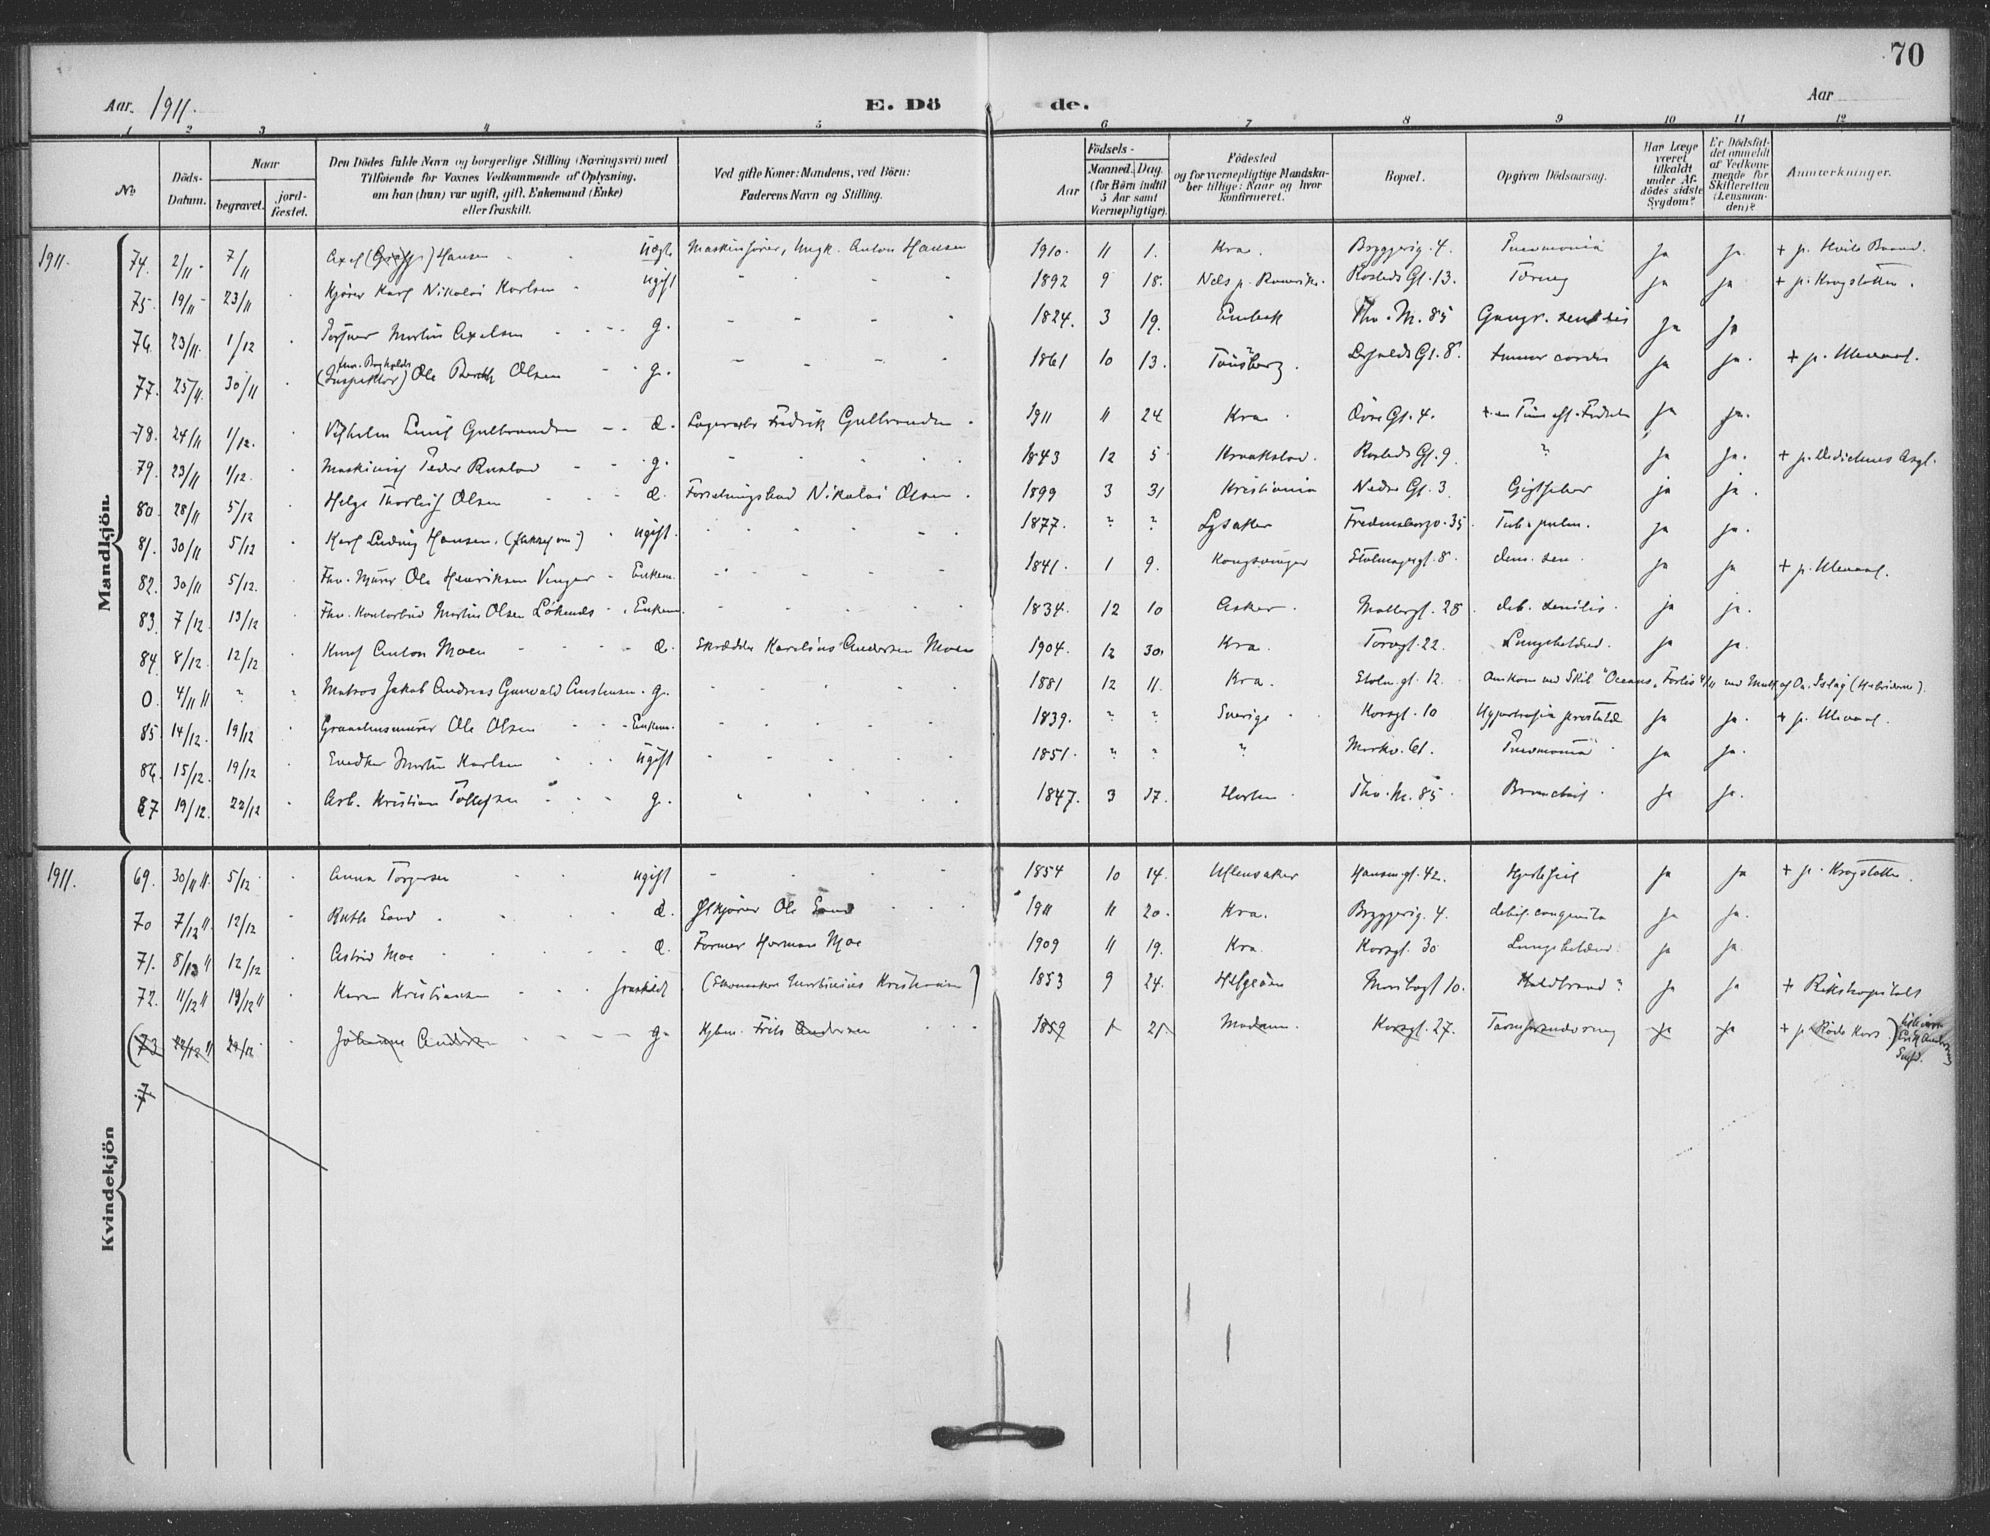 70
Aar 1911. E. Dö de. Aar
1 2 3 4 5 6 7 8 9 10 11 12
No. Döds-Datum. Naar begravet. jord-fæstet. Den Dödes fulde Navn og borgerlige Stilling (Næringsvei) med Tilföiende for Voxnes Vedkommende af Oplysning, om han (hun) var ugift, gift, Enkemand (Enke) eller fraskilt. Ved gifte Koner: Mandens, ved Börn: Faderens Navn og Stilling. Födsels- Aar Maaned. Dag. (for Börn indtil 5 Aar samt Værnepligtige). Födested og for værnepligtige Mandskaber tillige: Naar og hvor konfirmeret. Bopæl. Opgiven Dödsaarsag. Har Læge været tilkaldt under Afdödes sidste Sygdom? Er Dödsfaldet anmeldt af Vedkommende for Skifteretten (Lensmanden)? Anmærkninger.
Mandkjön
1911. 74. 2/11 7/11 Axel Hansen Uægt. Maskinfører, Ungk. Anton Hansen 1910. 11 1. Kra. Bryggerig. 4. Pneumonia ja ja.
75. 19/11 23/11 Kjører Karl Nikolai Karlsen ugift 1892 9 18. Nes p. Romerike. Rosteds Gt. 13. Tæring ja ja + p. Krogstøtten.
76. 23/11. 1/12 Martin Axelsen g. 1824. 3 19. Thv. M. 85 Gangr. senilis ja ja
77. 25/11. 30/11 (Inspektør) Ole Olsen g. 1861 10 13. Tønsberg. Gt. 8. tumor cordis ja ja. + p. Ullevaal.
78. 24/11 1/12. Vilhelm Emil Gulbrandsen d. Lagerarb. Fredrik Gulbrandsen 1911 11 24 Kra. Øvre Gt. 4. ja ja.
79. 23/11 1/12. Maskinist Peder Rustad g. 1843 12 5 Kraakstad. Rosteds Gt. 9. ? ja ja. + p. Dedichens Asyl.
80. 28/11 5/12 Helge Thorleif Olsen d. Forretningsbud Nikolai Olsen. 1899 3 31 Kristiania Nedre Gt. 3. Gigtfeber ja ja.
81. 30/11 5/12 Karl Ludvig Hansen. ugift. 1877. ? ? Lysaker Fredensborgv. 35. Tub. pulm. ja ja.
82. 30/11 5/12. Fhv. Murer Ole Henriksen Vinger Enkem. 1841. 1 9. Kongsvinger Stolmagergt. 8 dem. sen. ja ja + p. Ullevaal.
83. 7/12. 13/12 Fhv. Kontorbud Martin Olsen Løkens Enkem. 1834. 12 10 Asker. Møllergt. 28 deb. senilis. ja ja.
84. 8/12. 12/12 Knut Anton Moen d. Skrædder Karelius Andersen Moen 1904. 12 30. Kra. Torvgt. 22. Lungebetænd. ja ja.
0. 4/11 11 ? Matros Jakob Andreas Gunvald g. 1881 12 11. Kra. Stolm. gt. 12. Omkom ved Skib "Oceans" Forlis 4/11 (Hebriderne).
85. 14/12. 19/12 Ole Olsen Enkem. 1839. ? ? Sverige. Korsgt. 10 Hypertrofia prostatæ ja ja. + p. Ullevaal.
86. 15/12. 19/12 Snedker Martin Karlsen ugift 1851. ? ? ? Markv. 61. Pneumonia ja ja.
87. 19/12. 22/12 Arb. Kristian Tollefsen g. 1847. 3 17. Horten. Thv. M. 85. Bronchit. ja ja.
Kvindekjön
1911. 69. 30/11 11. 5/12. Anna Torgersen ugift 1854 10 14. Ullensaker Hausmgt. 42. Hjertefeil ja ja + p. Krogstøtten.
70 7/12 11 12/12 Ruth Sand. d. Ølkjører Ole Sand 1911 11 20. Kra. Bryggerig. 4. debil. congenita ja ja.
71. 8/12 11 12/12 Astrid Moe d. Former Herman Moe 1909 11 19. Kra. Korsgt. 30 Lungebetænd. ja ja.
72. 11/12 11 19/12 11 Karen Kristiansen fraskilt (Skomaker Martinius Kristiansen) 1853 9 24. Helgeøen Maribogt 10. Koldbrand? ja ja + Rikshospitalet
(73 22/12 11 Johanne Andersen g. Kjbm. Frits Andersen 1859 1 21. Korsgt. 27. Tarmforsnævring ja ja + p. Røde Kors.)
7